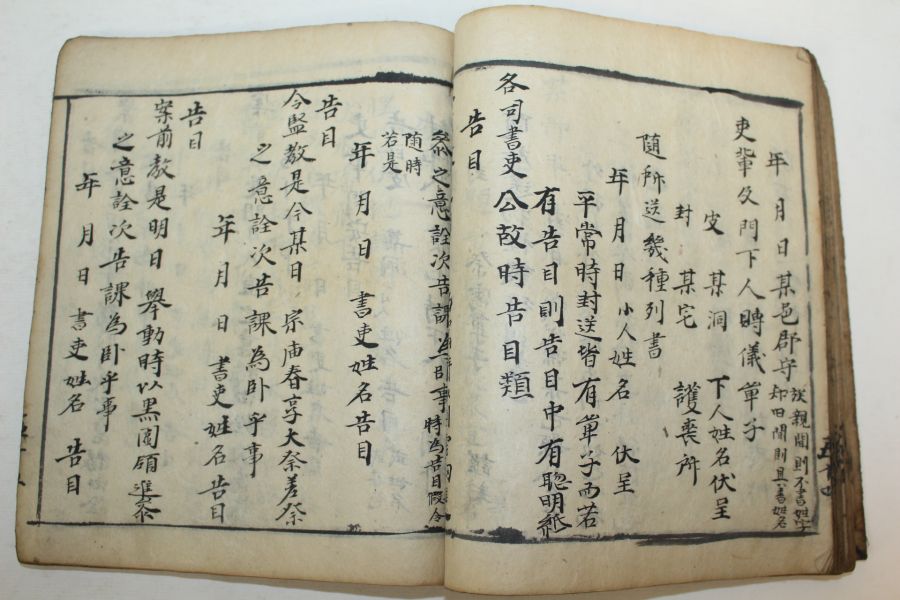 年 月 日 某邑郡守
族親間則不書姓字
知旧間則具書姓名
吏輩及門下人賻儀單子
皮 某洞 下人姓名伏呈
封 某宅 護喪所
隨所送幾種列書
年月日 小人姓名 伏呈
平常時封送皆有單子而若
有告目則告目中有聰明紙
各司書吏公故時告目類
告目
祭之意詮次告課 事
時為告目假令
隨時
若是
年月日 書吏姓名告目
告目
令監教是今某日 宗庙春享大祭差祭
之意詮次告課為臥乎事
年月日 書吏姓名告目
告目
案前教是明日 舉動時以黑團領進参
之意詮次告課為臥乎事
年月日書吏姓名 告目